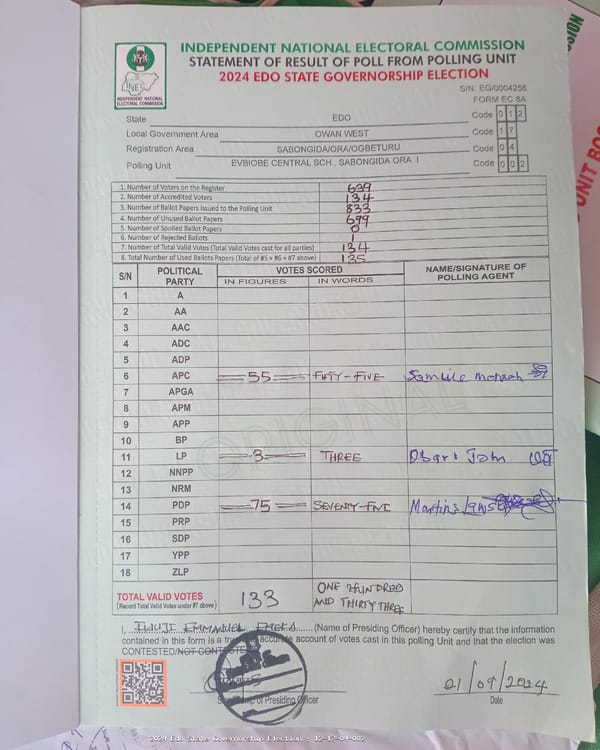 INDEPENDENT NATIONAL ELECTORAL COMMISSION
STATEMENT OF RESULT OF POLL FROM POLLING UNIT
2024 EDO STATE GOVERNORSHIP ELECTION
INEC
INDEPENDENT NATIONAL
ELECTORAL COMMISSION
S/N: EG/0004256
FORM EC 8A
State EDO Code 0 1 2
Local Government Area OWAN WEST Code 1 7
Registration Area SABONGIDA/ORA/OGBETURU Code 0 4
Polling Unit EVBIOBE CENTRAL SCH., SABONGIDA ORA I Code 0 0 2
1. Number of Voters on the Register 639
2. Number of Accredited Voters 134
3. Number of Ballot Papers Issued to the Polling Unit 833
4. Number of Unused Ballot Papers 699
5. Number of Spoiled Ballot Papers 0
6. Number of Rejected Ballots 1
7. Number of Total Valid Votes (Total Valid Votes cast for all parties) 134
8. Total Number of Used Ballots Papers (Total of #5 + #6 + #7 above) 135
S/N POLITICAL PARTY VOTES SCORED NAME/SIGNATURE OF POLLING AGENT
IN FIGURES IN WORDS
1 A
2 AA
3 AAC
4 ADC
5 ADP
6 APC 55 FIFTY-FIVE
7 APGA
8 APM
9 APP
10 BP
11 LP 3 THREE John
12 NNPP
13 NRM
14 PDP 75 SEVENTY-FIVE Martins
15 PRP
16 SDP
17 YPP
18 ZLP
ORIGINAL
TOTAL VALID VOTES 133 ONE HUNDRED
(Record Total Valid Votes under #7 above) AND THIRTY THREE
I, EMMANUEL EMEKA (Name of Presiding Officer) hereby certify that the information
contained in this form is a true accurate account of votes cast in this polling Unit and that the election was
CONTESTED/NOT CONTESTED
of Presiding Officer
21/09/2024
Date
2024 Edo State Governorship Election : 12-17-04-002
UNIT